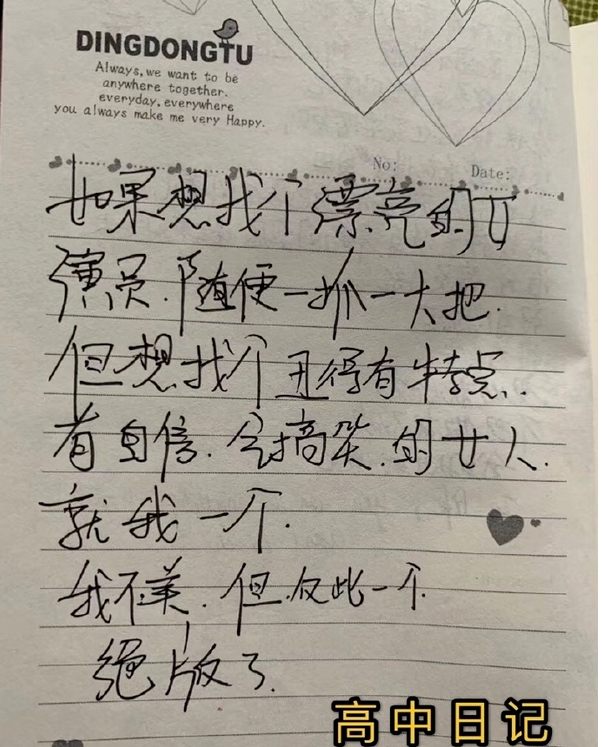 DINGDONGTU
Always, we want to be
anywhere together.
everyday, everywhere
you always make me very Happy.
No: Date:
如果想找个漂亮的女
演员.随便一抓一大把.
但想找个丑得有特点.
有自信.会搞笑.的女人.
就我一个.
我不美.但仅此一个.
绝版了.
高中日记